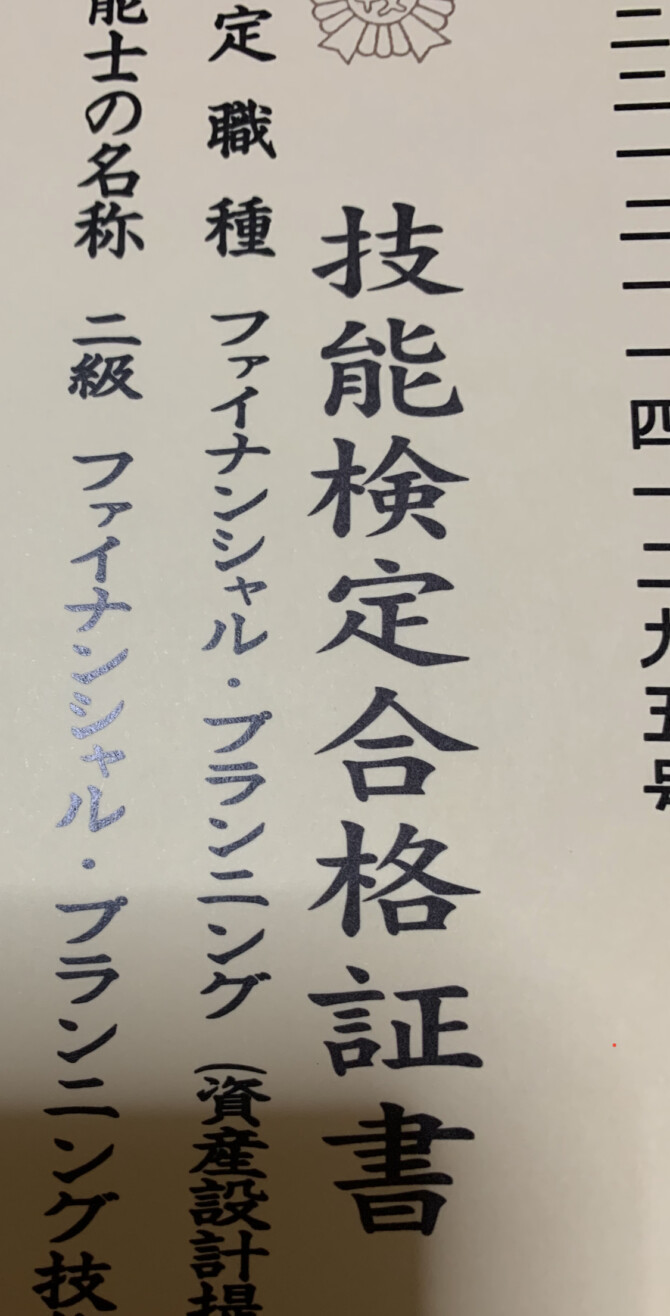 二二一二一一四一二九五号
技能検定合格証書
定職種 ファイナンシャル・プランニング (資産設計提
能士の名称 二級 ファイナンシャル・プランニング技